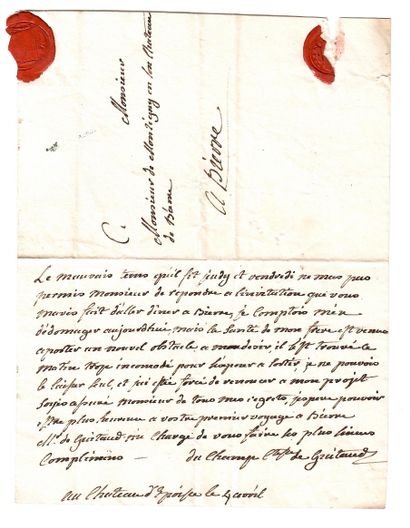 Monsieur
Monsieur de Montigny en son chateau
de Bierre
A Bierre
Le mauvais tems qu'il fit jeudy et vendredi ne mas pas
permis Monsieur de repondre a l'invitation que vous
mavés fait daller diner a Bierre, je Comptois men
dédomager aujourdhui, mais la Santé de mon frere est venue
aporter un nouvel obstacle a mon desir il sest trouvé ce
matin trop incomodé pour s'exposer a sortir, je ne pouvois
le laisser seul, et jai été forcé de renoncer a mon projet
soyes assuré Monsieur de tous mes regrets, jespere pouvoir
estre plus heureux a vostre premier voyage a Bierre
Mr. de Guitaud ma Chargé de vous faire ses plus sinceres
Complimens — du Champs de Guitaud
au Chateau d'Epoisse le 4 avril